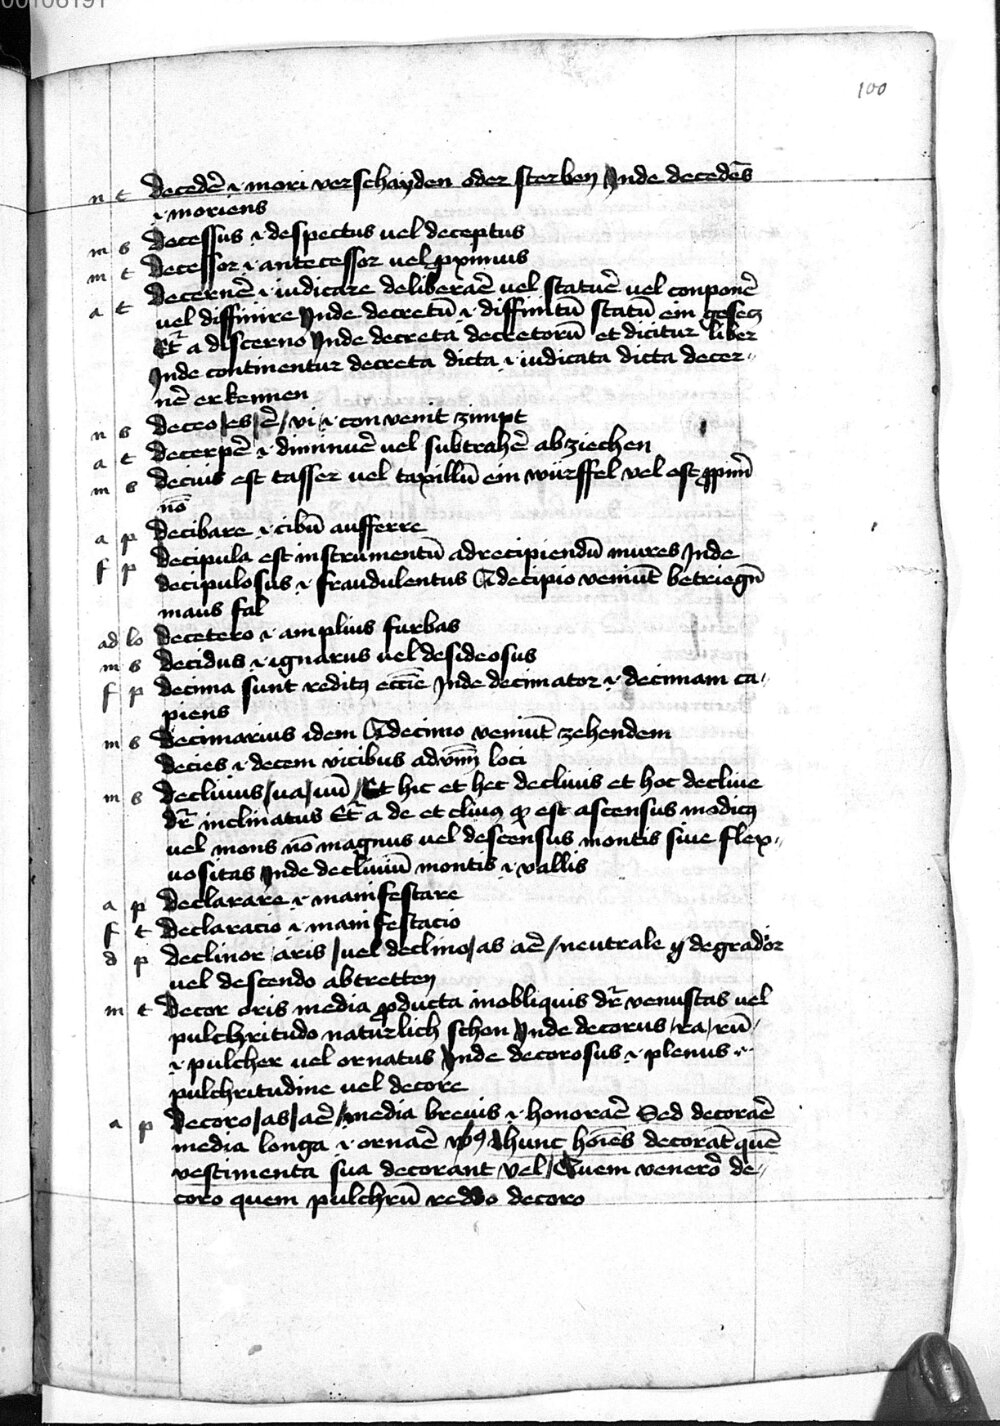 00106191
100
n t decedē ⁊ mori verschayden oder sterben Inde decedēs
⁊ moriens
m s decessus ⁊ despectus vel deceptus
m t decessor ⁊ antecessor vel pximus
a t decernē ⁊ iudicare deliberaē vel statuē vel conponē
vel diffinire Inde decretū ⁊ diffinitū statū ein gesecz
Et a discerno Inde decreta decretorū et dicitur liber
Inde continentur decreta dicta ⁊ iudicata dicta decer-
nē erkennen
n s deceo/es/ē/vi ⁊ convenit zimpt
a t decerpē ⁊ diminuē vel subtrahē abziechen
m s decius est tasser vel taxillū ein würffel vel est ppiū
nō
a p decibare ⁊ cibū aufferre
f p decipula est instrumentū ad recipiendū mures Inde
decipulosus ⁊ fraudulentus A decipio veniūt betriegñ
maus fal
ad lo decetero ⁊ amplius furbas
m s decidus ⁊ ignarus vel desideosus
f p decima sunt redit9 eccīe Inde decimator ⁊ decimam ca-
piens
m s decimarius idem A decimo veniūt zehendem
decies ⁊ decem vicibus adv̄m loci
m s declivius/va/vū/Et hic et hec declivis et hoc declive
dr̄ inclinatus Et a de et clivus qd est ascensus modic9
vel mons nō magnus vel descensus montis sive flex-
uositas Inde decliviū montis ⁊ vallis
a p declarare ⁊ manifestare
f t declaracio ⁊ manifestacio
d p declinor aris/vel declino/as aē/neutrale ÿ degradior
vel descendo abtretten
m t decor oris media pducta in obliquis dr̄ venustas vel
pulchritudo naturlich schon Inde decorus/ra/rū/
⁊ pulcher vel ornatus Inde decorosus ⁊ plenus
pulchritudine vel decore
a p decoro/as/aē/media brevis ⁊ honoraē Sed decoraē
media longa ⁊ ornaē vs9 hunc hoīes decorāt quē
vestimenta sua decorant vel/Quem venero de-
coro quem pulchrū reddo decoro